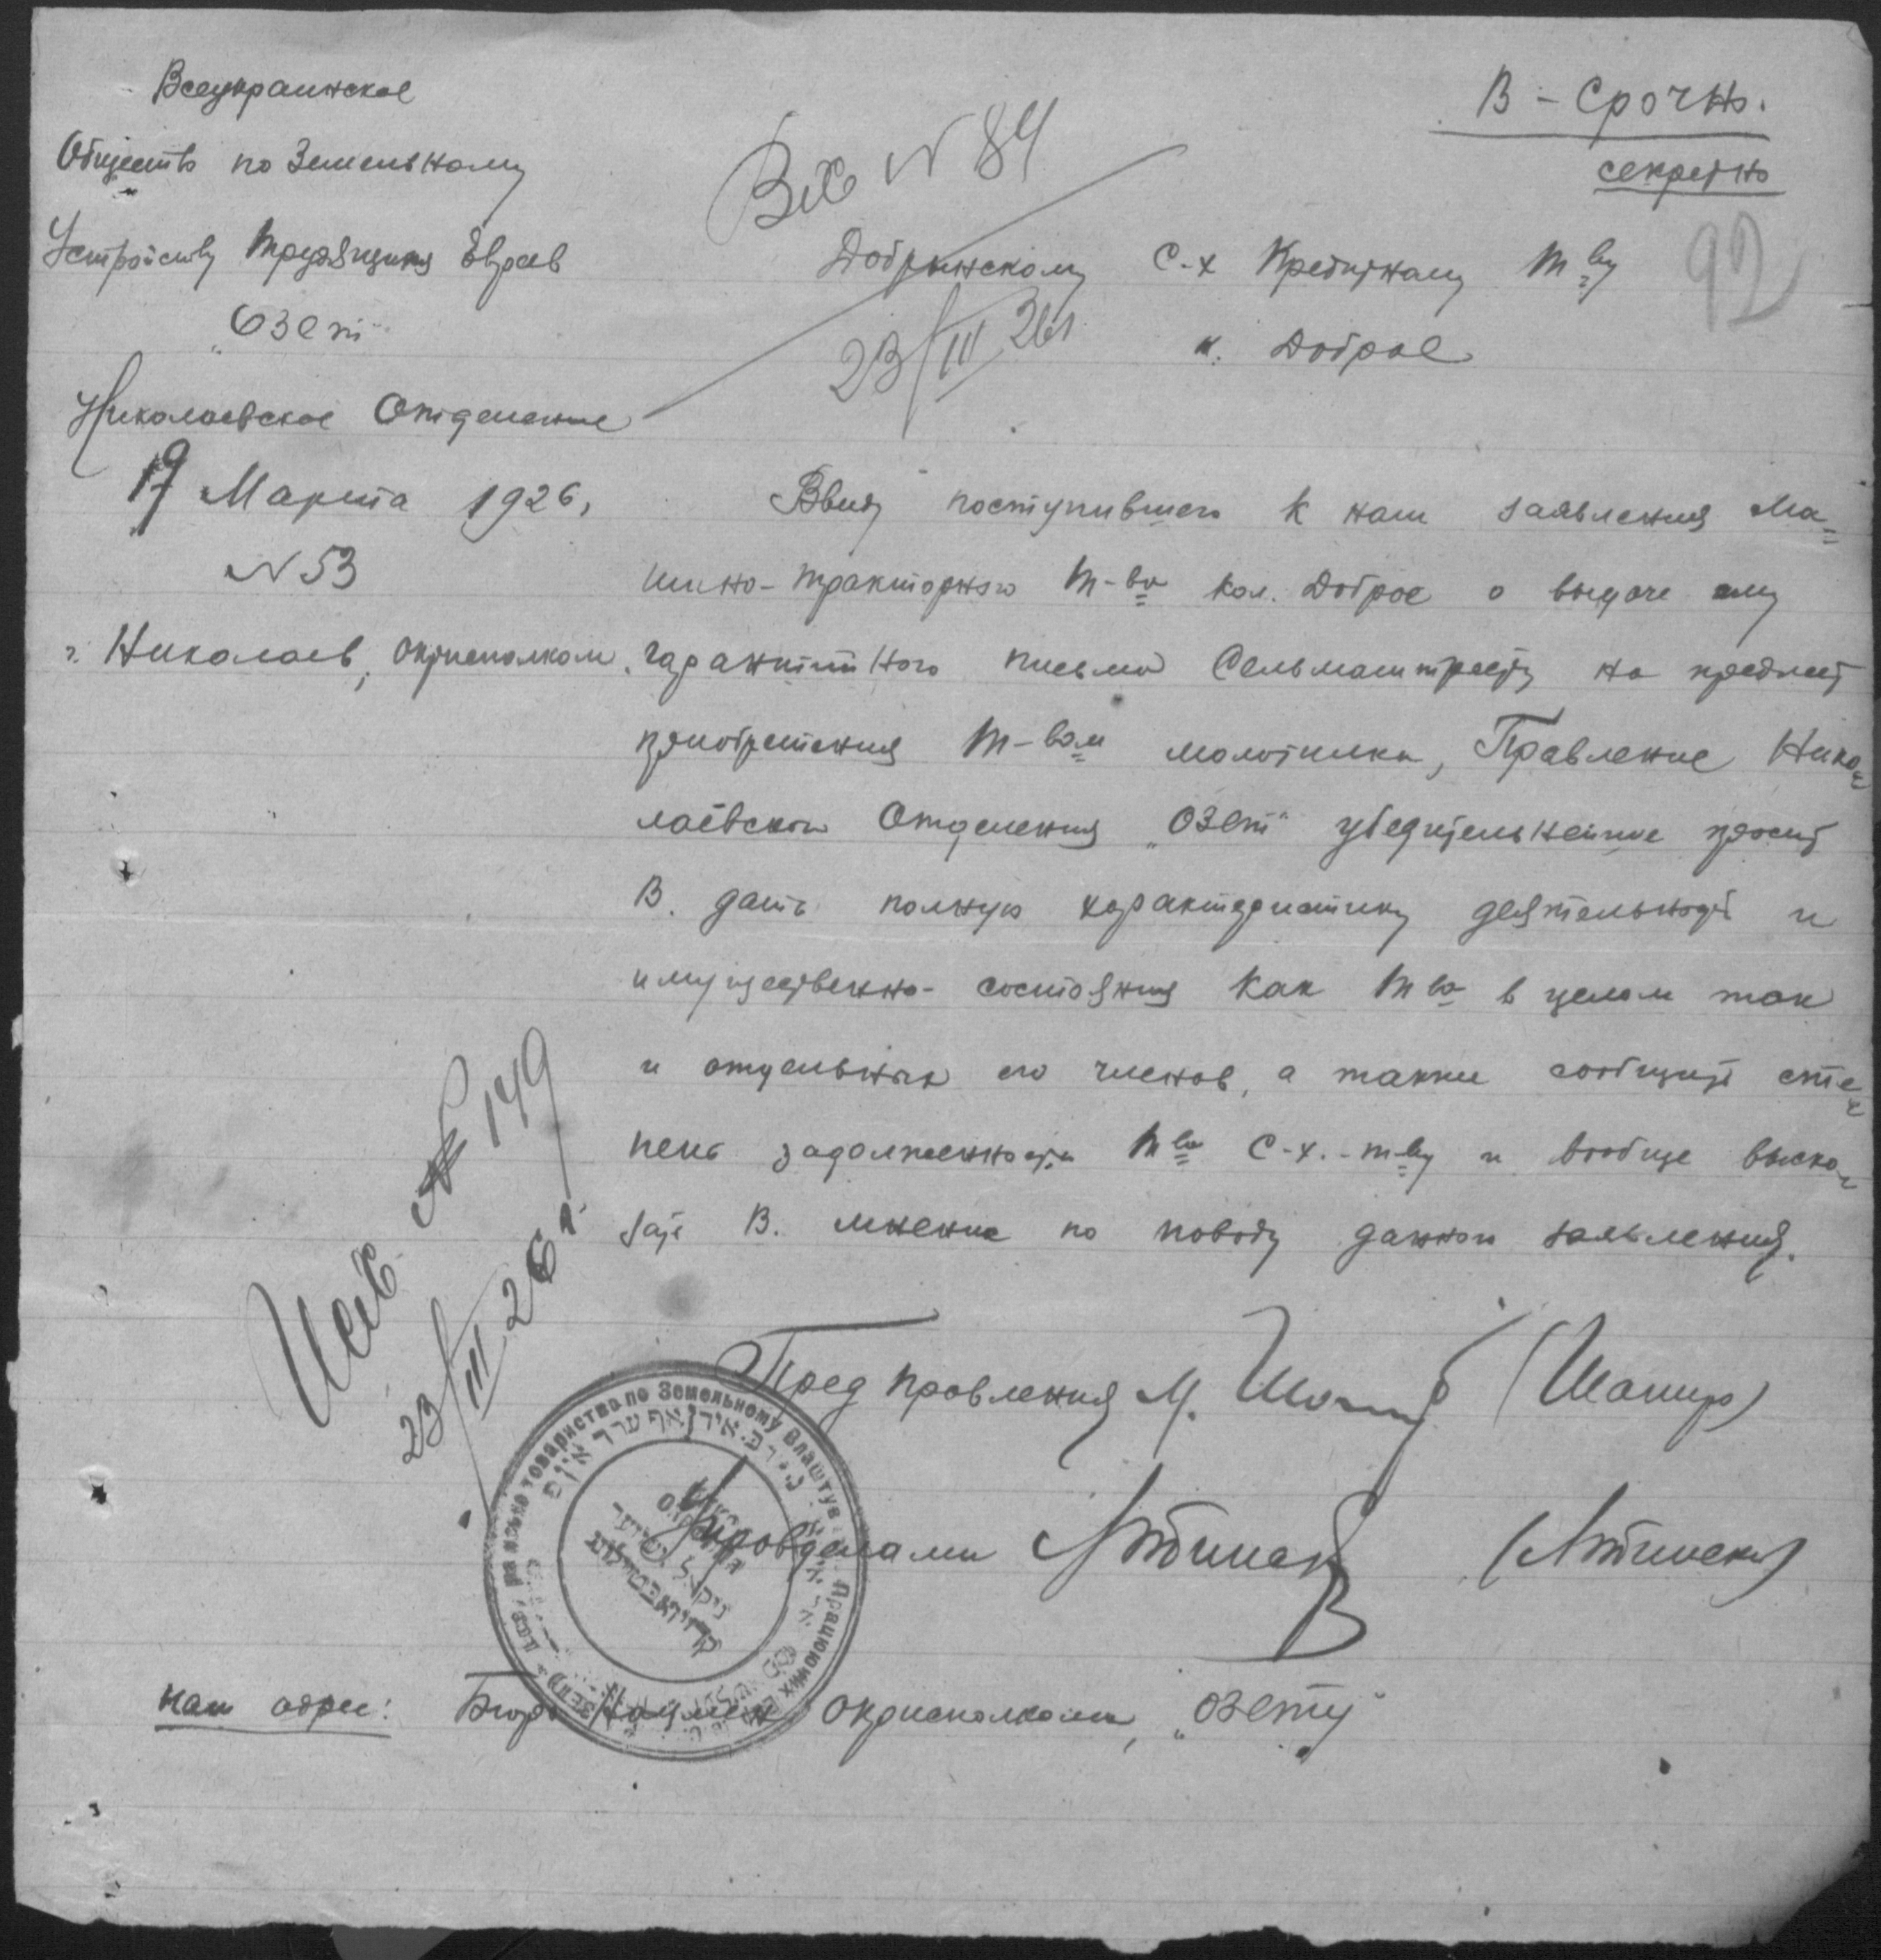 Всеукраинское
Общество по Земельному
Устройству Трудящихся Евреев
„Озет"
Николаевское Отделение
19 Марта 1926,
N 53
г. Николаев, Окрисполком.
В-срочно.
секретно
92
Вх N 84
23/III 26 г.
Добрынскому С-х Кредитному Т-ву
к. Доброе
Ввиду поступившего к нам заявления Ма-
шино-тракторного Т-ва кол. Доброе о выдаче ему
гарантийного письма Сельмаштресту на предмет
приобретения Т-вом молотилки, Правление Нико-
лаевского Отделения „Озет" убедительнейше просит
В. дать полную характеристику деятельности и
имущественно- состояния как Т-ва в целом так
и отдельных его членов, а также сообщить сте-
пень задолженности Т-ва С-х.-т-ву и вообще выска-
зать В. мнение по поводу данного заявления.
Исх. N 149
23/III 26 г.
Пред правления М. Шапир (Шапиро)
Управделами
товариство по Земельному Влаштув
Працюючих
наш адрес: Бюро Нацмен Окрисполкома, „Озету"